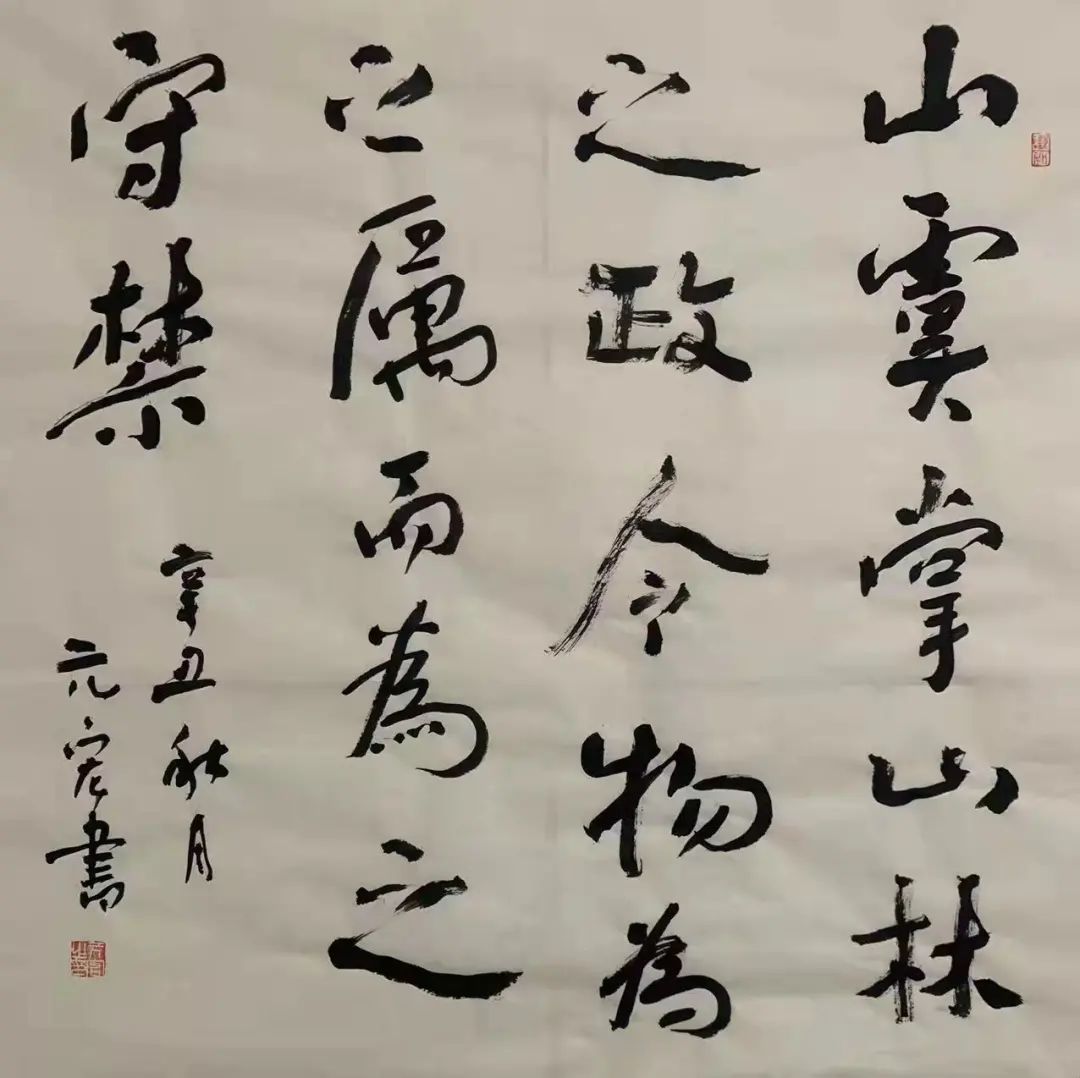 山虞掌山林
之政令物為
之厲而為之
守禁
辛丑秋月
元宏書